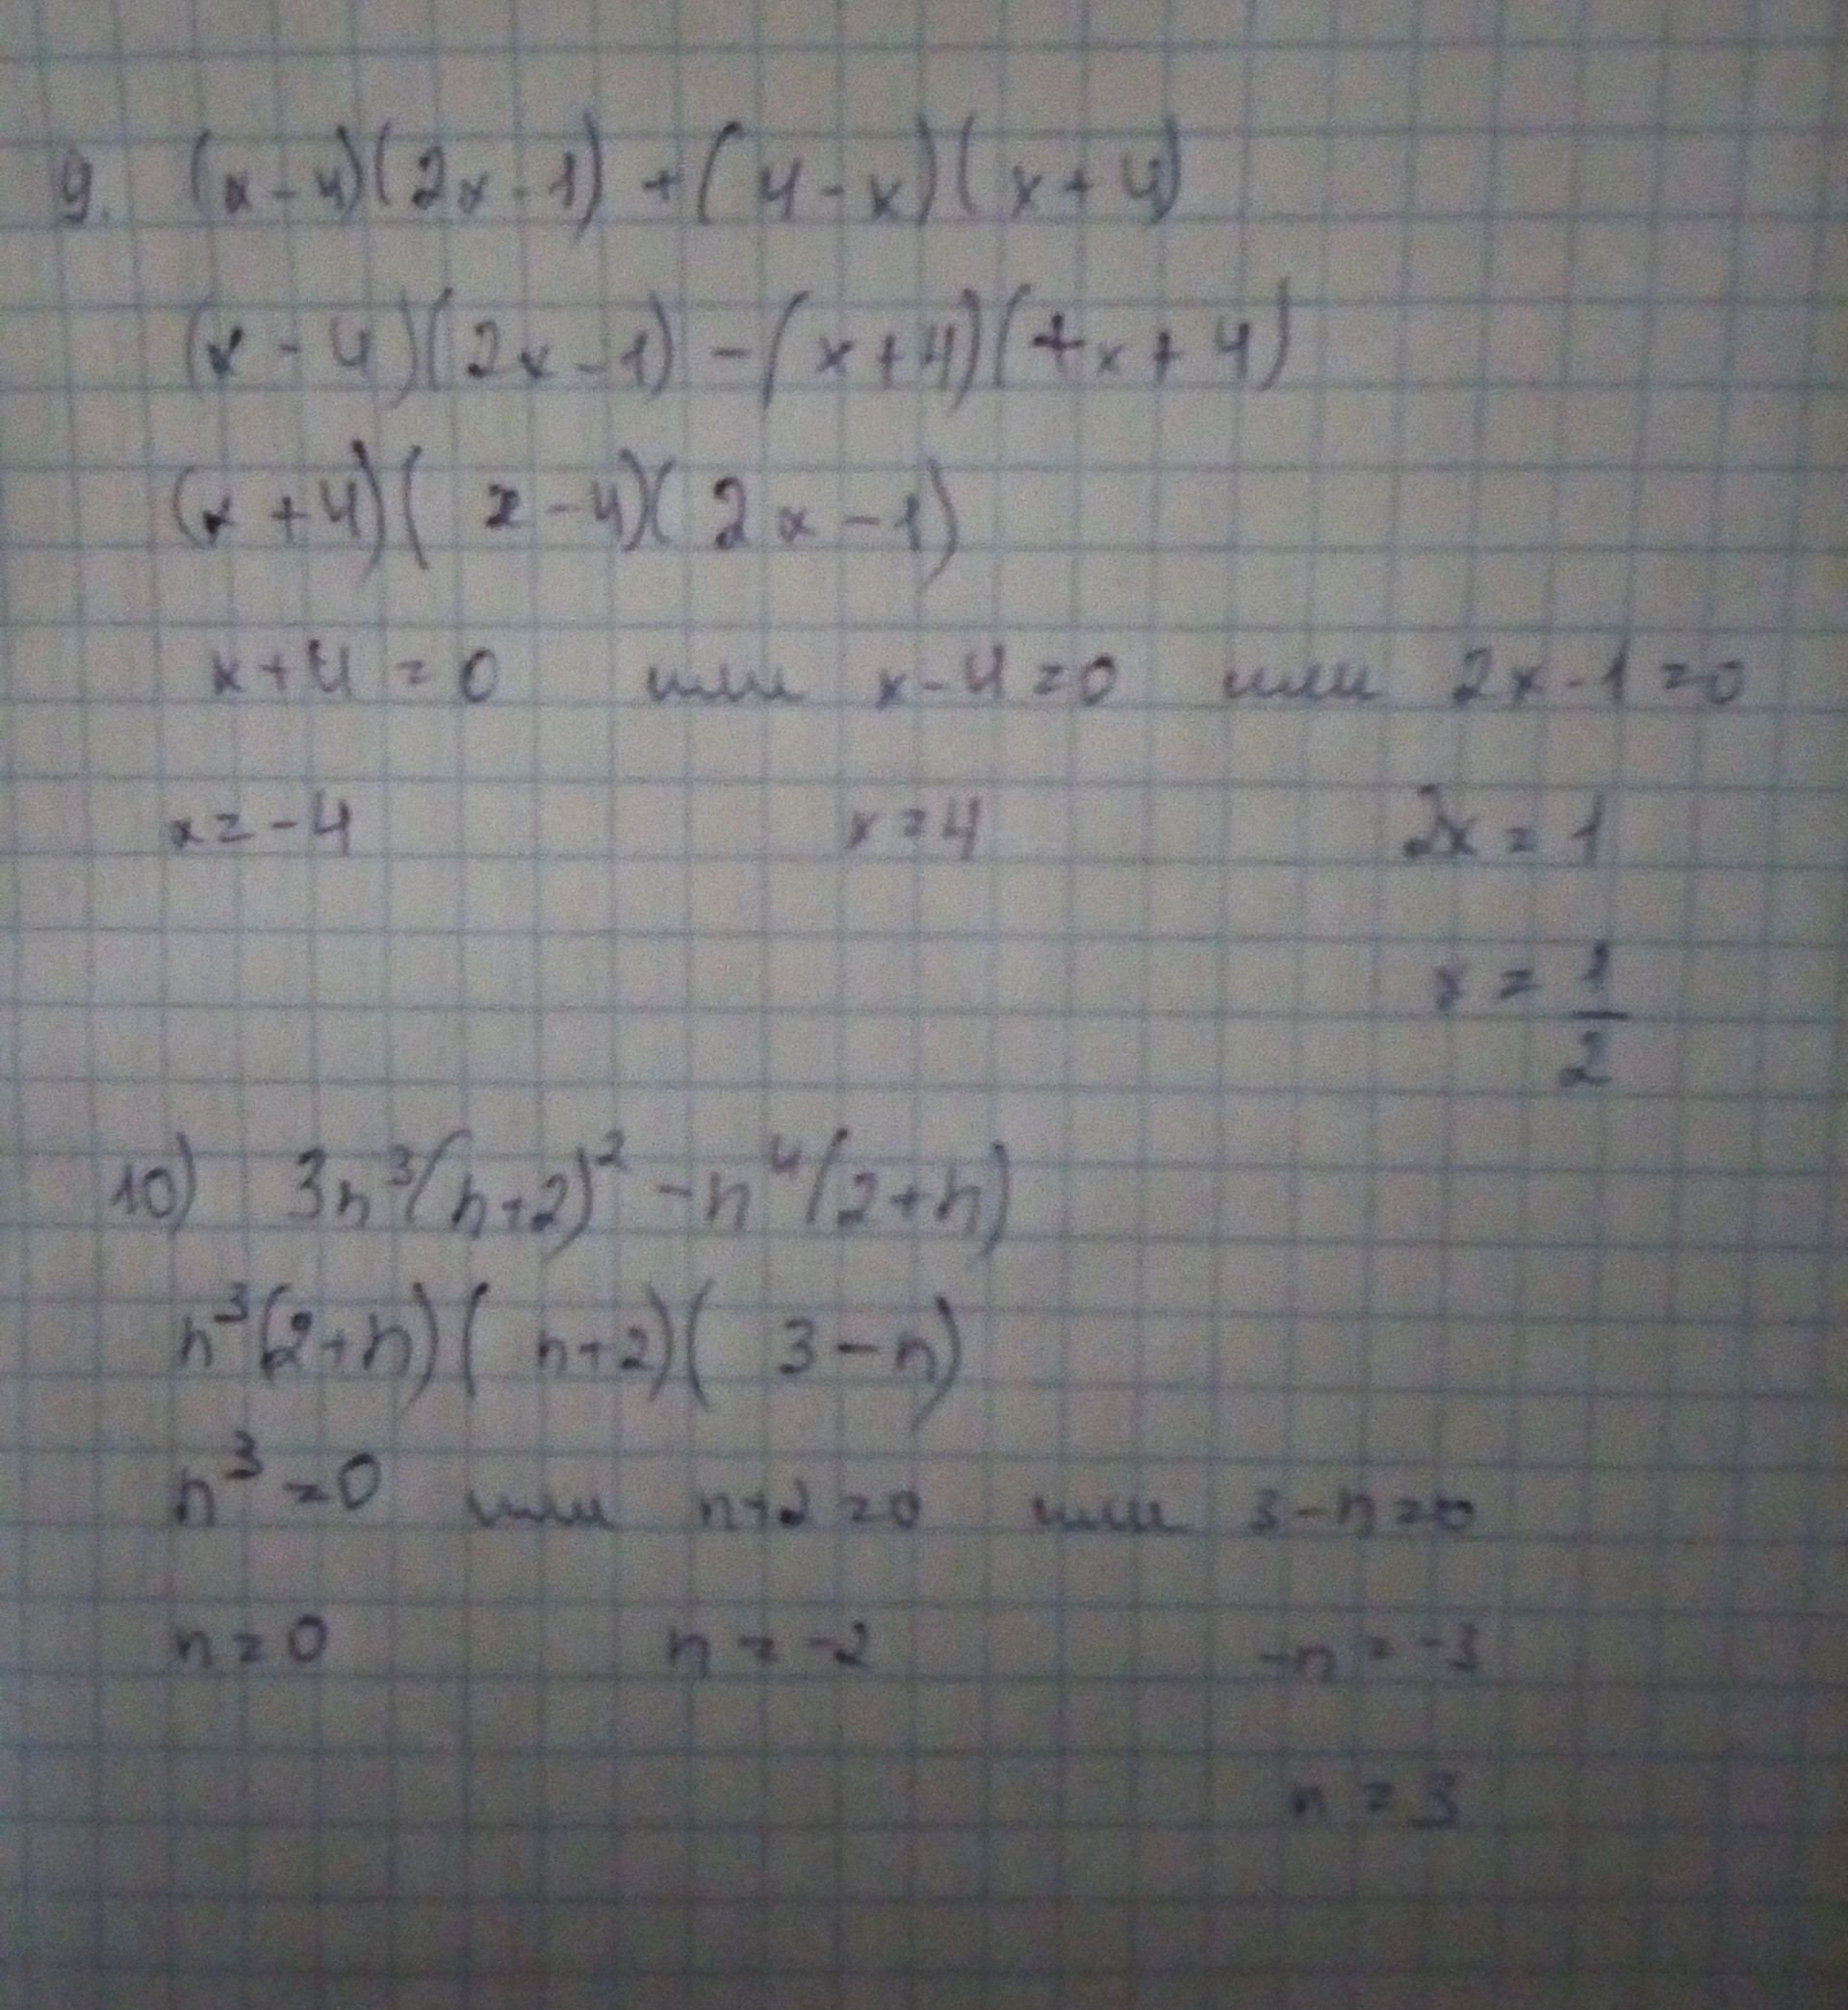 9. (x-4)(2x-1)+(4-x)(x+4)
(x-4)(2x-1)-(x+4)(+x+4)
(x+4)(x-4)(2x-1)
x+4=0 или x-4=0 или 2x-1=0
x=-4 x=4 2x=1
x=1/2
10) 3n³(n+2)²-n⁴(2+n)
n³(2+n)(n+2)(3-n)
n³=0 или n+2=0 или 3-n=0
n=0 n=-2 -n=-3
n=3